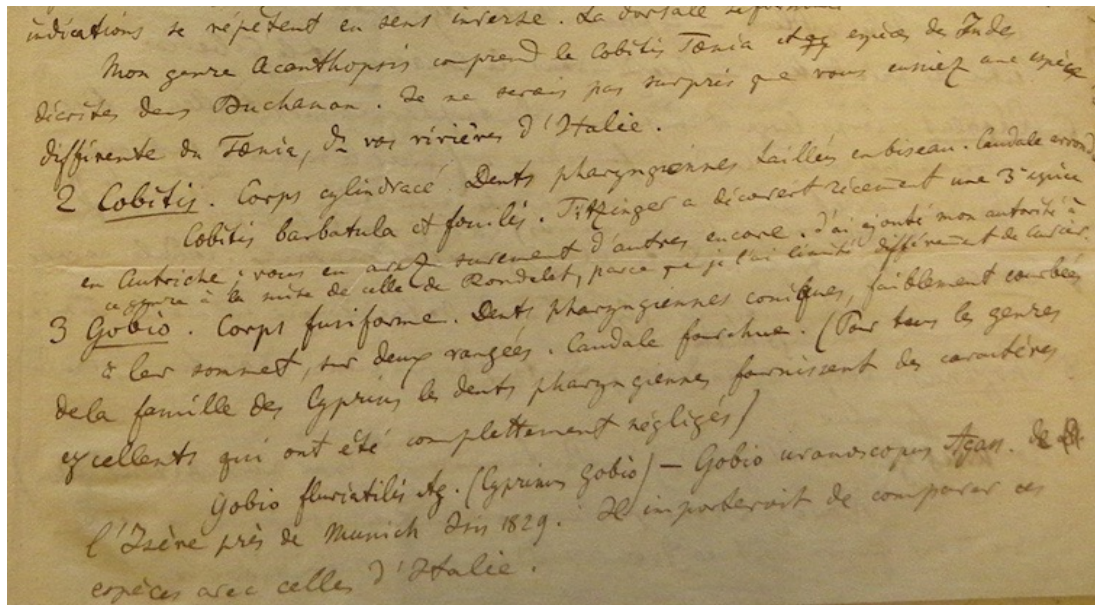 indications se répètent en sens inverse. La dorsale
Mon genre Acanthopsis comprend le Cobitis Taenia et espèces des Indes
décrites dans Buchanan. Je ne serais pas surpris que vous eussiez une espèce
différente du Taenia, de vos rivières d'Italie.
2 Cobitis. Corps cylindracé. Dents pharyngiennes taillées en biseau. Caudale arrondie
Cobitis barbatula et fossilis. Fitzinger a découvert récemment une 3e espèce
en Autriche; vous en avez surement d'autres encore. J'ai ajouté mon autorité à
ce genre à la suite de celle de Rondelet, parce que je l'ai limité différement de Cuvier.
3 Gobio. Corps fusiforme. Dents pharyngiennes coniques, faiblement courbées
à leur sommet, sur deux rangées. Caudale fourchue. (Pour tous les genres
de la famille des Cyprins les dents pharyngiennes fournissent des caractères
excellents qui ont été complettement négligés)
Gobio fluviatilis Ag. (Cyprinus gobio) — Gobio uranoscopus Agass. de
l'Isère près de Munich Isis 1829. Il importeroit de comparer ces
espèces avec celles d'Italie.